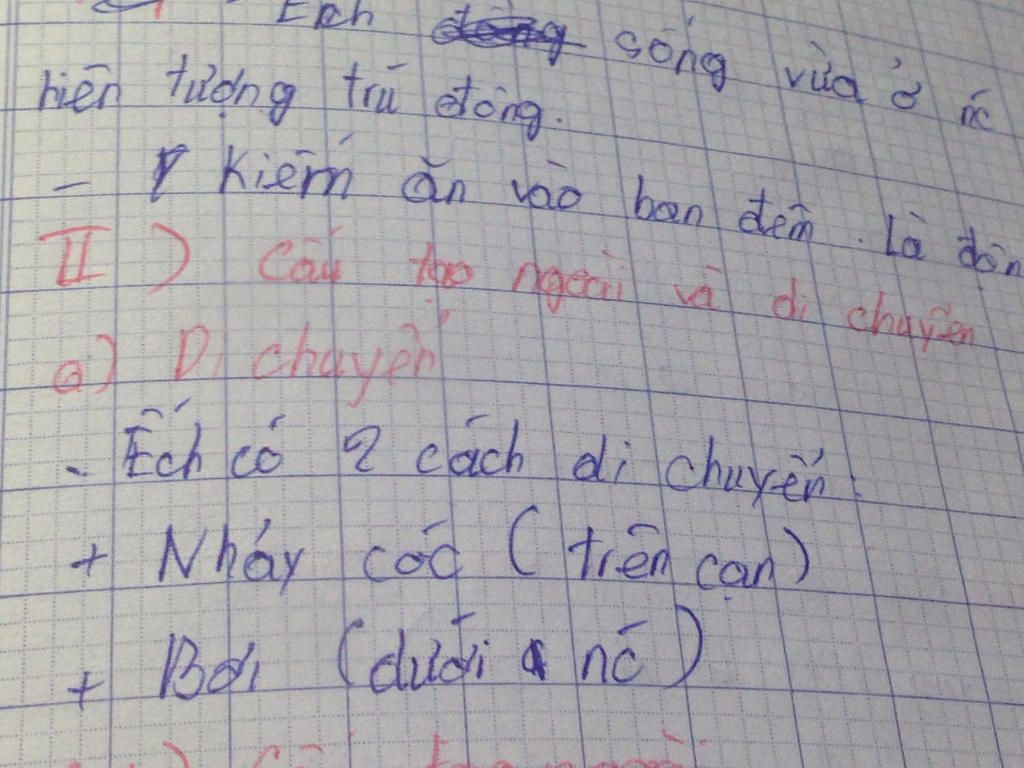 Ếch sống vừa ở nc
hiện tượng trú đông.
- Kiếm ăn vào ban đêm. Là độn
II) Cấu tạo ngoài và di chuyển
a) Di chuyển
- Ếch có 2 cách di chuyển.
+ Nhảy cóc (trên cạn)
+ Bơi (dưới nc)